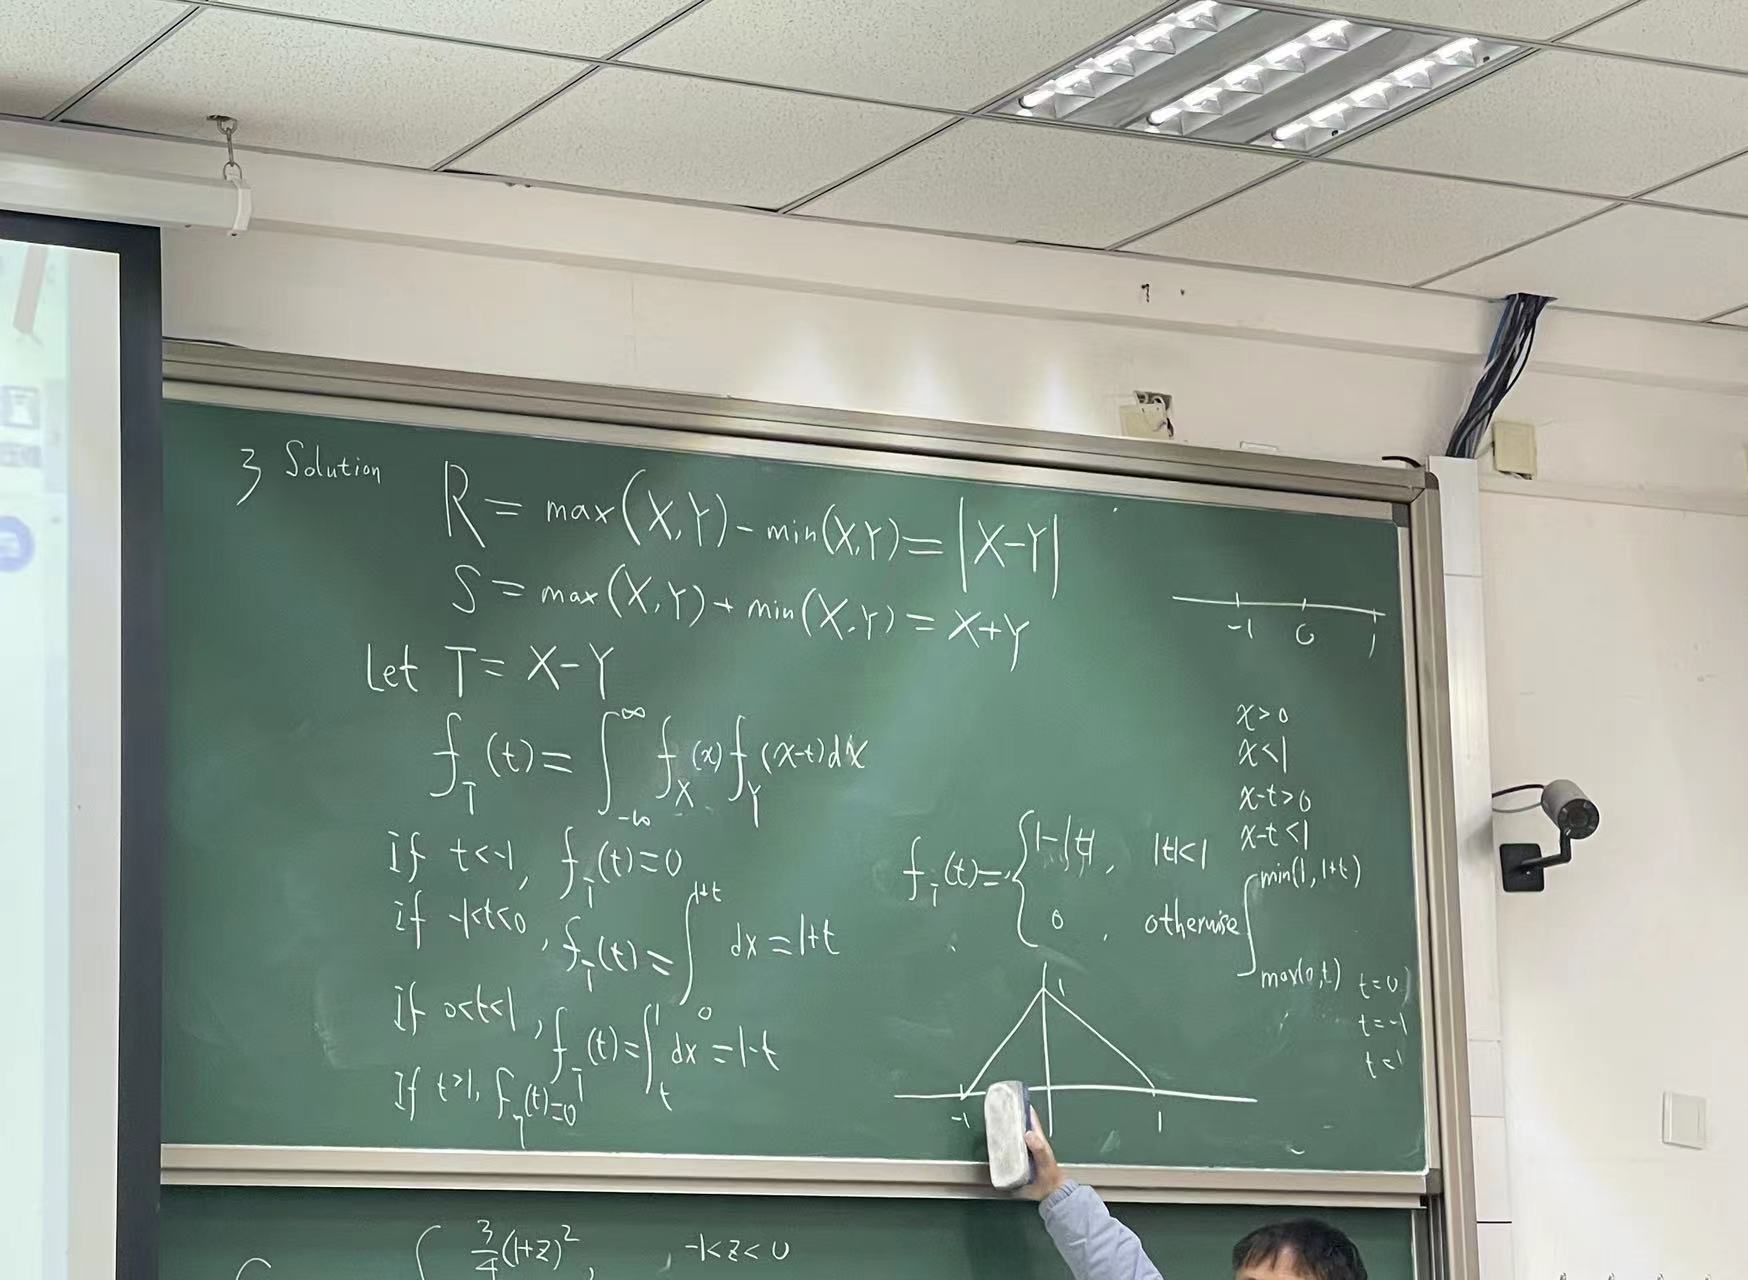 3 Solution
R = max(X,Y) - min(X,Y) = |X-Y|
S = max(X,Y) + min(X,Y) = X+Y
Let T = X-Y
f_T(t) = ∫_{-∞}^{∞} f_X(x) f_Y(x-t)dx
if t<-1, f_T(t)=0
if -1<t<0, f_T(t) = ∫_0^{1+t} dx = 1+t
if 0<t<1, f_T(t) = ∫_t^1 dx = 1-t
if t>1, f_T(t)=0
-1 0 1
x>0
x<1
x-t>0
x-t<1
f_T(t) = { 1-|t|, |t|<1
0, otherwise
∫_{max(0,t)}^{min(1,1+t)}
t=0
t=-1
t=1
1
-1 1
3/4(1+z)^2, -1<z<0